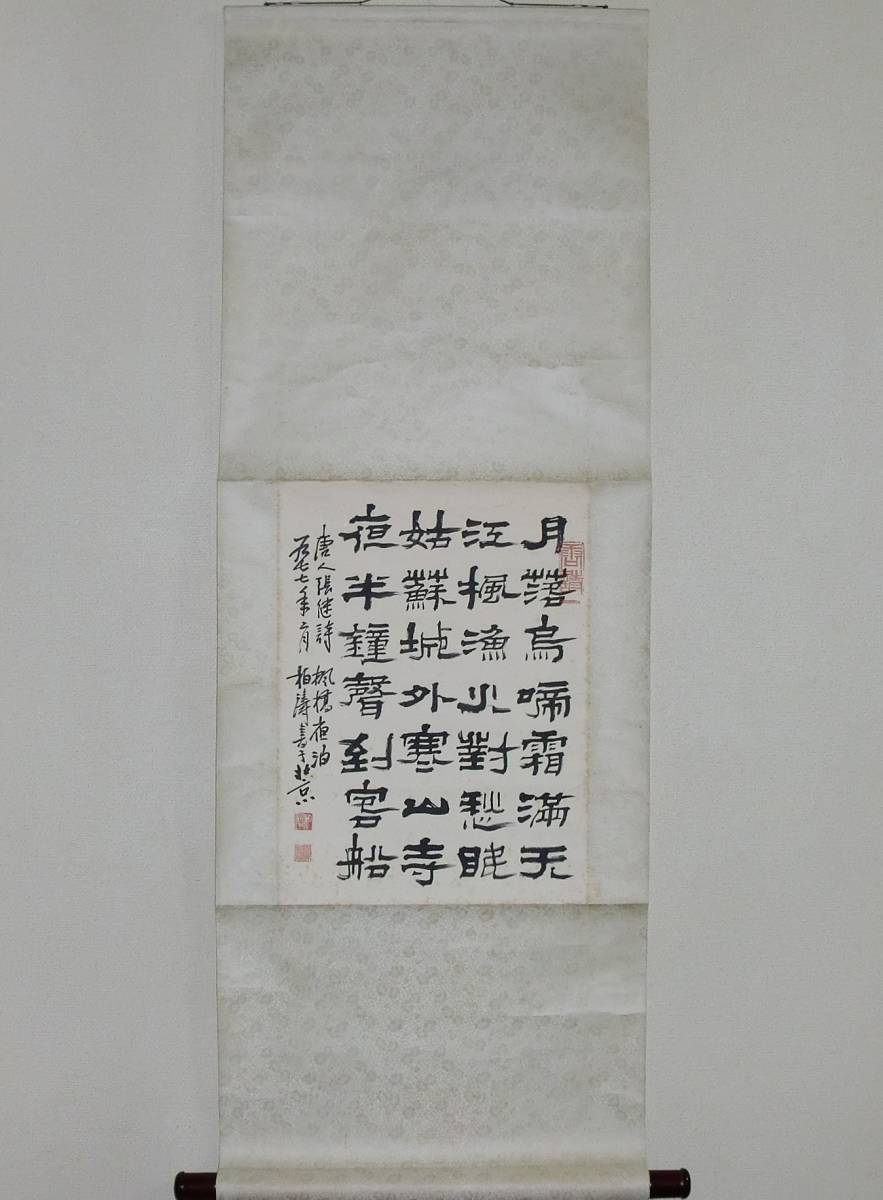 月落烏啼霜滿天
江楓漁火對愁眠
姑蘇城外寒山寺
夜半鐘聲到客船
唐人張继詩 楓橋夜泊
一九七七年二月 柏濤書于北京